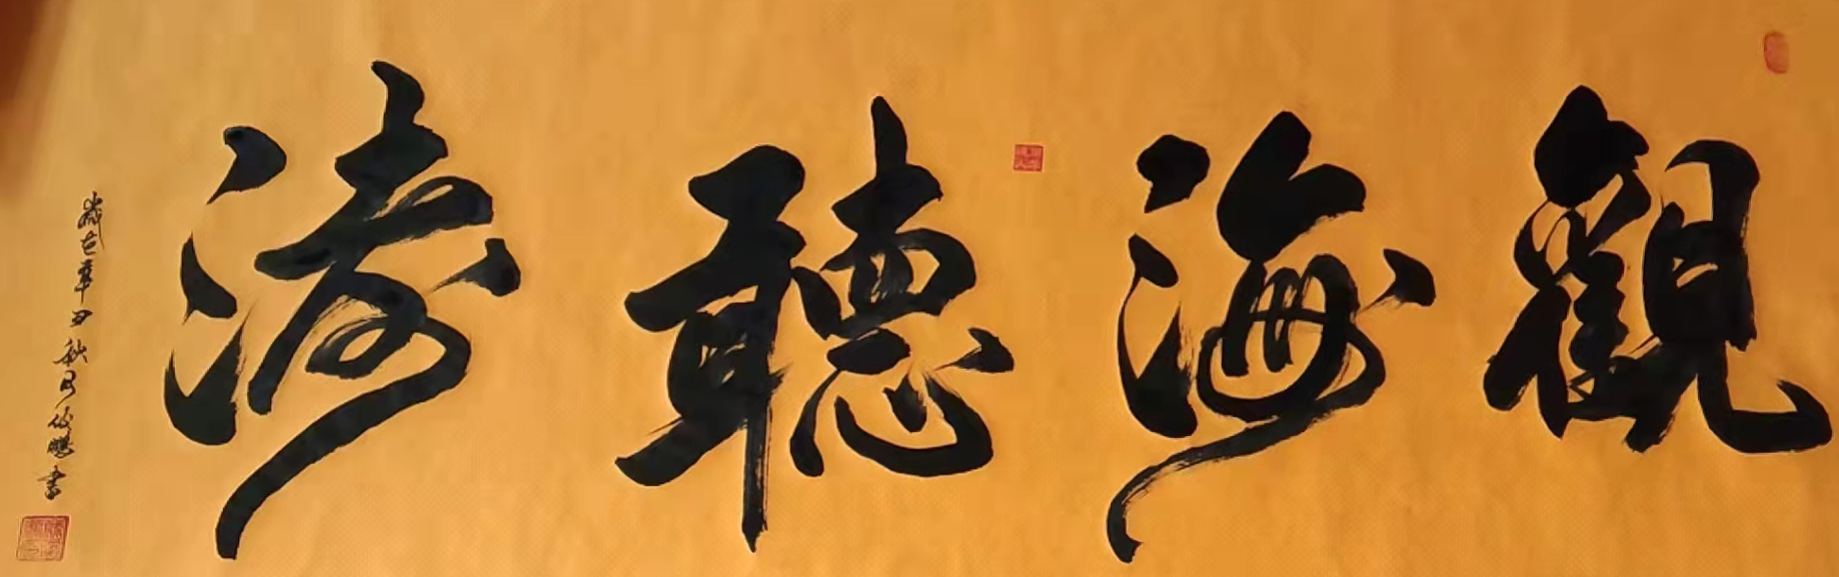 觀海聽濤
歲在辛丑秋月俊鵬書